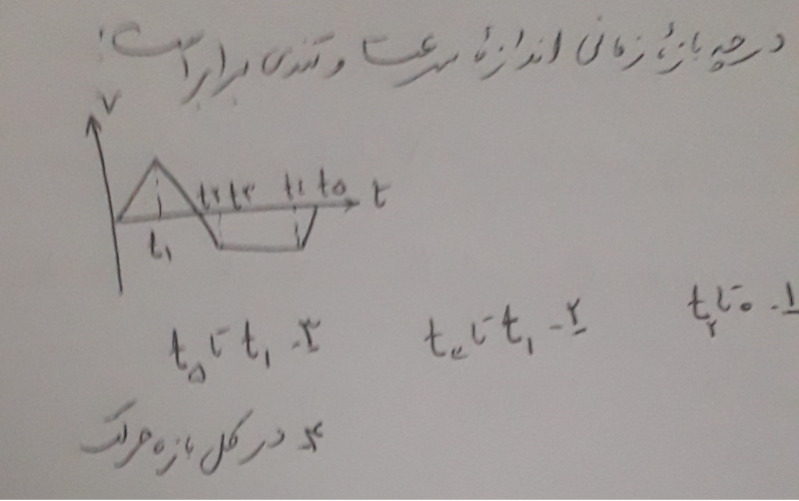 در چه بازهٔ زمانی اندازهٔ سرعت و تندی برابر است:
v
t۲ t۳ t۴ t۵ t
t۱
۱- ۰ تا t۲
۲- t۱ تا t۳
۳- t۱ تا t۵
۴ در کل بازه حرکت